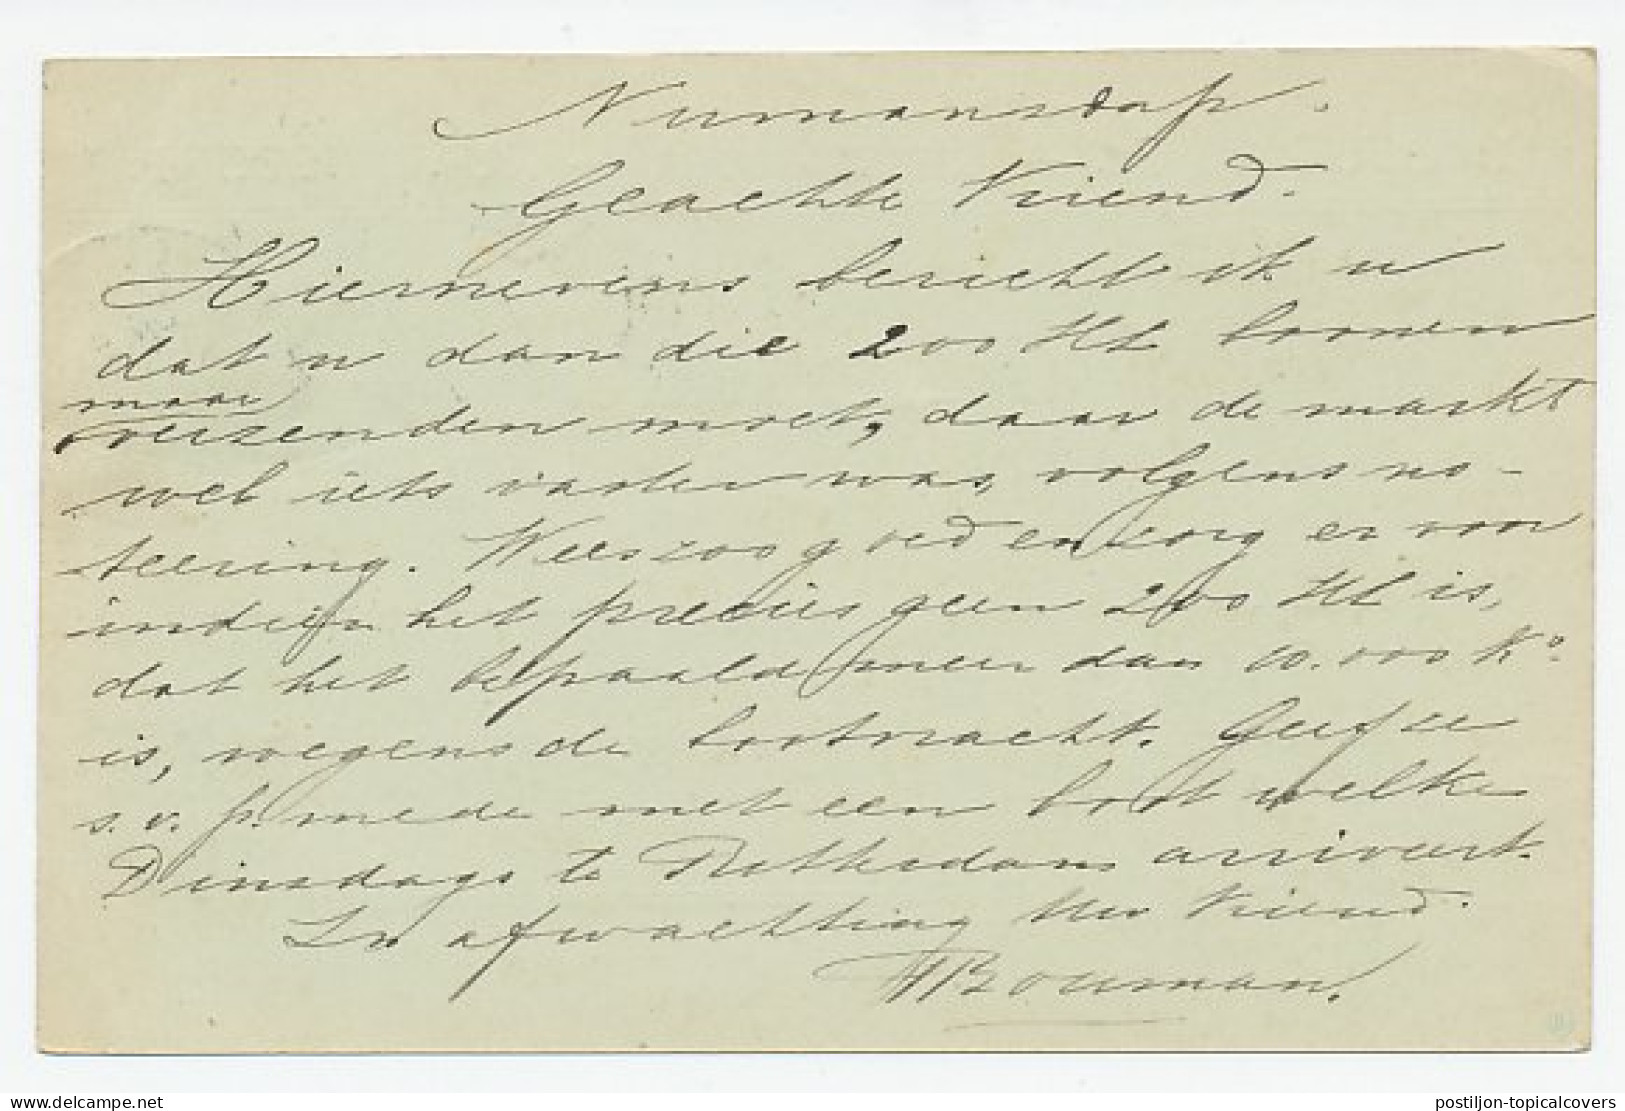 Numansdorp.
Geachte Vriend.
Hiernevens bericht ik u
dat u dan die 200 Hl boonen
maar
verzenden moet, daar de markt
wel iets vaster was, volgens no-
teering. Wees zoo goed en zorg er voor
indien het precies geen 200 Hl is,
dat het bepaald meer dan 10.000 Ko.
is, wegens de bootvracht. Geef ze
s.v.p. mede met een boot welke
Dinsdags te Rotterdam arriveert.
In afwachting Uw Vriend.
Bouman.
www.delcampe.net
postiljon-topicalcovers